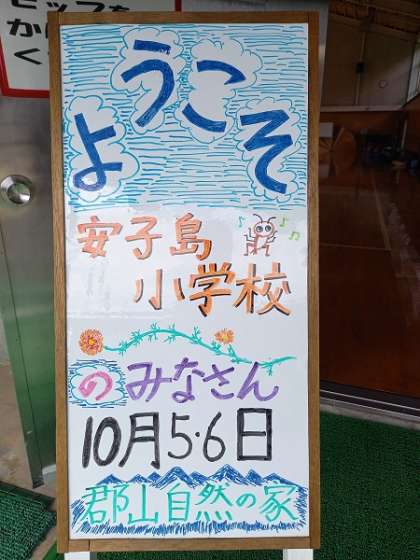 ようこそ
安子島
小学校
のみなさん
10月5・6日
郡山自然の家